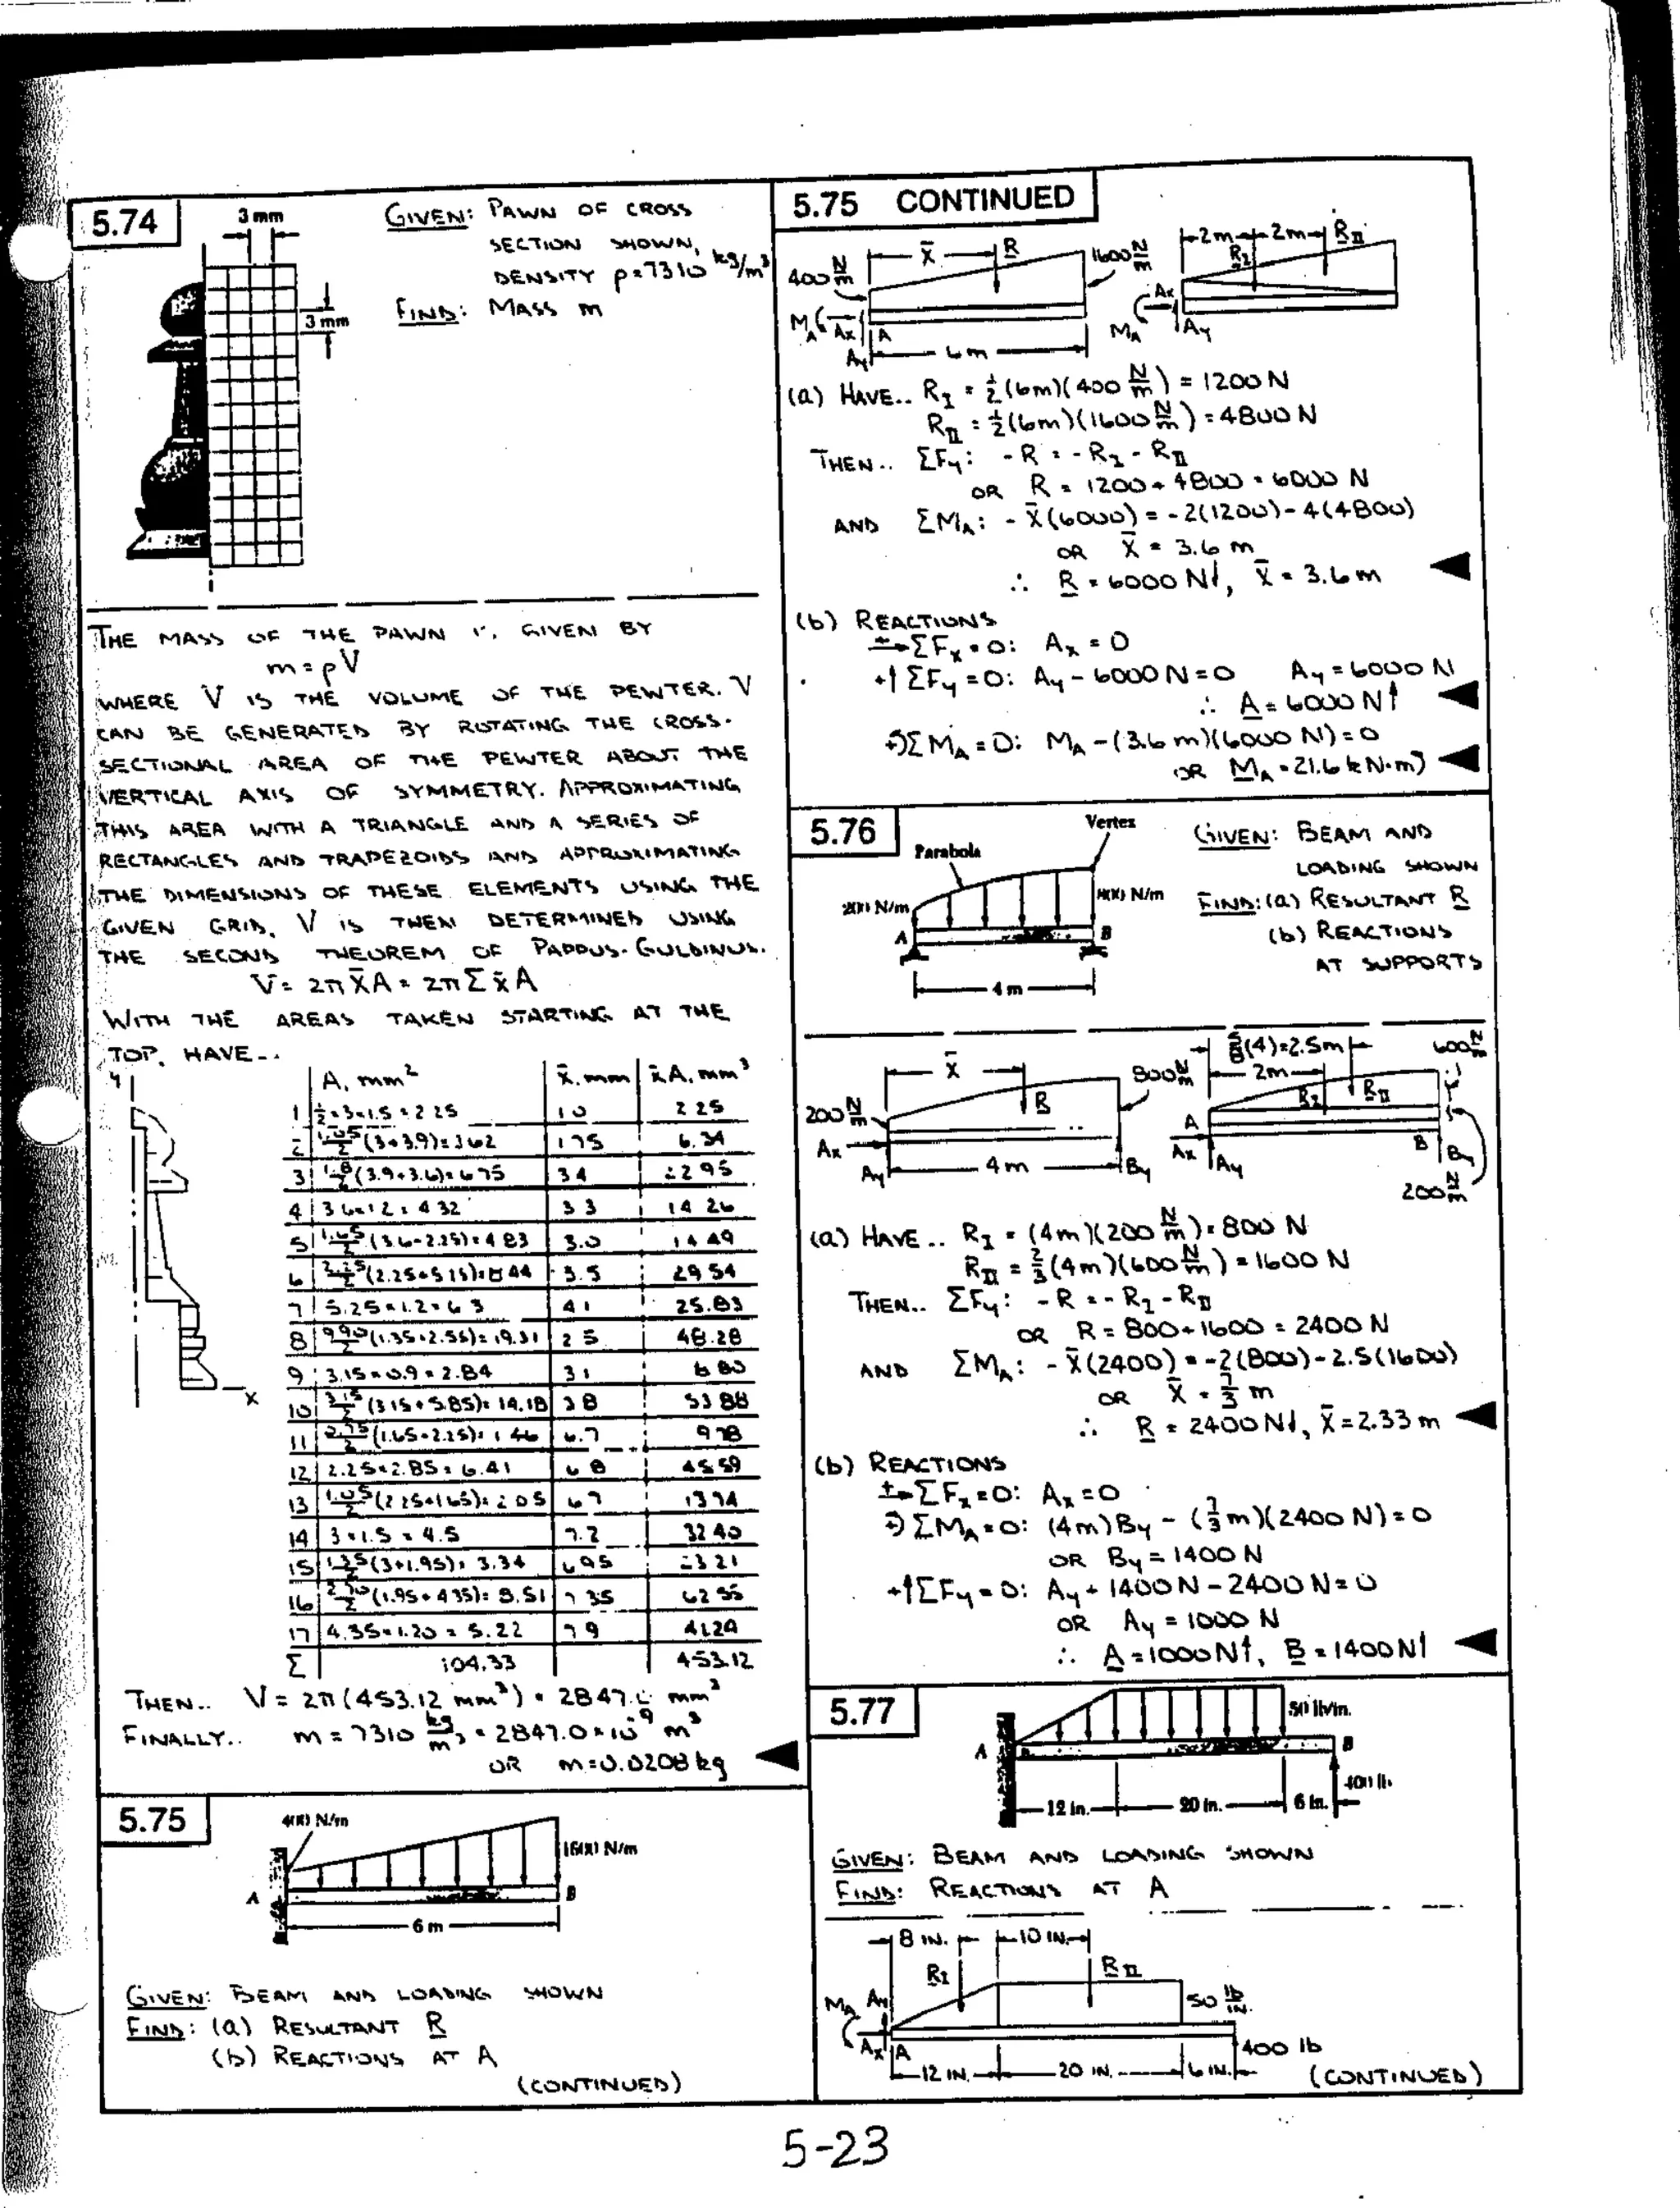 5.74
3 mm
3 mm
GIVEN: PAWN OF CROSS
SECTION SHOWN,
DENSITY ρ=7310 kg/m³
FIND: MASS m
THE MASS OF THE PAWN IS GIVEN BY
m = ρV
WHERE V IS THE VOLUME OF THE PEWTER. V
CAN BE GENERATED BY ROTATING THE CROSS-
SECTIONAL AREA OF THE PEWTER ABOUT THE
VERTICAL AXIS OF SYMMETRY. APPROXIMATING
THIS AREA WITH A TRIANGLE AND A SERIES OF
RECTANGLES AND TRAPEZOIDS AND APPROXIMATING
THE DIMENSIONS OF THESE ELEMENTS USING THE
GIVEN GRID, V IS THEN DETERMINED USING
THE SECOND THEOREM OF PAPPUS-GULDINUS.
V = 2π X̄A = 2π Σ x̄A
WITH THE AREAS TAKEN STARTING AT THE
TOP, HAVE..
y
x
A, mm² x̄, mm x̄A, mm³
1 ½×3×1.5 = 2.25 1.0 2.25
2 1.05/2 (3+3.9)= 3.62 1.75 6.34
3 1.8/2 (3.9+3.6)= 6.75 3.4 22.95
4 3.6×1.2 = 4.32 3.3 14.26
5 1.65/2 (3.6+2.25)= 4.83 3.0 14.49
6 2.25/2 (2.25+5.25)= 8.44 3.5 29.54
7 5.25×1.2 = 6.3 4.1 25.83
8 9.90/2 (1.35+2.55)= 19.31 2.5 48.28
9 3.15×0.9 = 2.84 3.1 8.80
10 3.15/2 (3.15+5.85)= 14.18 3.8 53.88
11 (1.65+2.25)= 1.46 6.7 9.78
12 2.25×2.85 = 6.41 6.8 43.59
13 1.05/2 (2.25+1.65)= 2.05 6.7 13.74
14 3×1.5 = 4.5 7.2 32.40
15 1.35/2 (3+1.95)= 3.34 6.95 23.21
16 2.70/2 (1.95+4.35)= 8.51 7.35 62.55
17 4.35×1.20 = 5.22 7.9 41.24
Σ 104.33 453.12
THEN.. V = 2π (453.12 mm³) = 2847.0 mm³
FINALLY.. m = 7310 kg/m³ × 2847.0×10⁻⁹ m³
OR m = 0.0208 kg
5.75
400 N/m
1600 N/m
A
B
6 m
GIVEN: BEAM AND LOADING SHOWN
FIND: (a) RESULTANT R
(b) REACTIONS AT A
(CONTINUED)
5.75 CONTINUED
X̄
R
400 N/m
1600 N/m
M_A
A_x
A
A_y
6m
2m
2m
R_I
R_II
A_x
M_A
A_y
(a) HAVE.. R_I = ½(6m)(400 N/m) = 1200 N
R_II = ½(6m)(1600 N/m) = 4800 N
THEN.. ΣF_y: -R = -R_I - R_II
OR R = 1200 + 4800 = 6000 N
AND ΣM_A: -X̄(6000) = -2(1200) - 4(4800)
OR X̄ = 3.6 m
∴ R = 6000 N↓, X̄ = 3.6 m
(b) REACTIONS
+→ΣF_x = 0: A_x = 0
+↑ΣF_y = 0: A_y - 6000 N = 0 A_y = 6000 N
∴ A = 6000 N↑
+↺ΣM_A = 0: M_A - (3.6 m)(6000 N) = 0
OR M_A = 21.6 kN·m↺
5.76
Vertex
Parabola
200 N/m
800 N/m
A
B
4 m
GIVEN: BEAM AND
LOADING SHOWN
FIND: (a) RESULTANT R
(b) REACTIONS
AT SUPPORTS
X̄
R
200 N/m
800 N/m
A_x
A_y
4m
B_y
⅝(4)=2.5m
2m
600 N/m
R_I
R_II
A
B
A_x
A_y
B_y
200 N/m
(a) HAVE.. R_I = (4m)(200 N/m) = 800 N
R_II = ⅔(4m)(600 N/m) = 1600 N
THEN.. ΣF_y: -R = -R_I - R_II
OR R = 800 + 1600 = 2400 N
AND ΣM_A: -X̄(2400) = -2(800) - 2.5(1600)
OR X̄ = 7/3 m
∴ R = 2400 N↓, X̄ = 2.33 m
(b) REACTIONS
+→ΣF_x = 0: A_x = 0
+↺ΣM_A = 0: (4m)B_y - (7/3 m)(2400 N) = 0
OR B_y = 1400 N
+↑ΣF_y = 0: A_y + 1400 N - 2400 N = 0
OR A_y = 1000 N
∴ A = 1000 N↑, B = 1400 N↑
5.77
50 lb/in.
A
B
400 lb
12 in.
20 in.
6 in.
GIVEN: BEAM AND LOADING SHOWN
FIND: REACTIONS AT A
8 IN.
10 IN.
R_I
R_II
M_A
A_y
A_x
A
50 lb/IN.
400 lb
12 IN.
20 IN.
6 IN.
(CONTINUED)
5-23